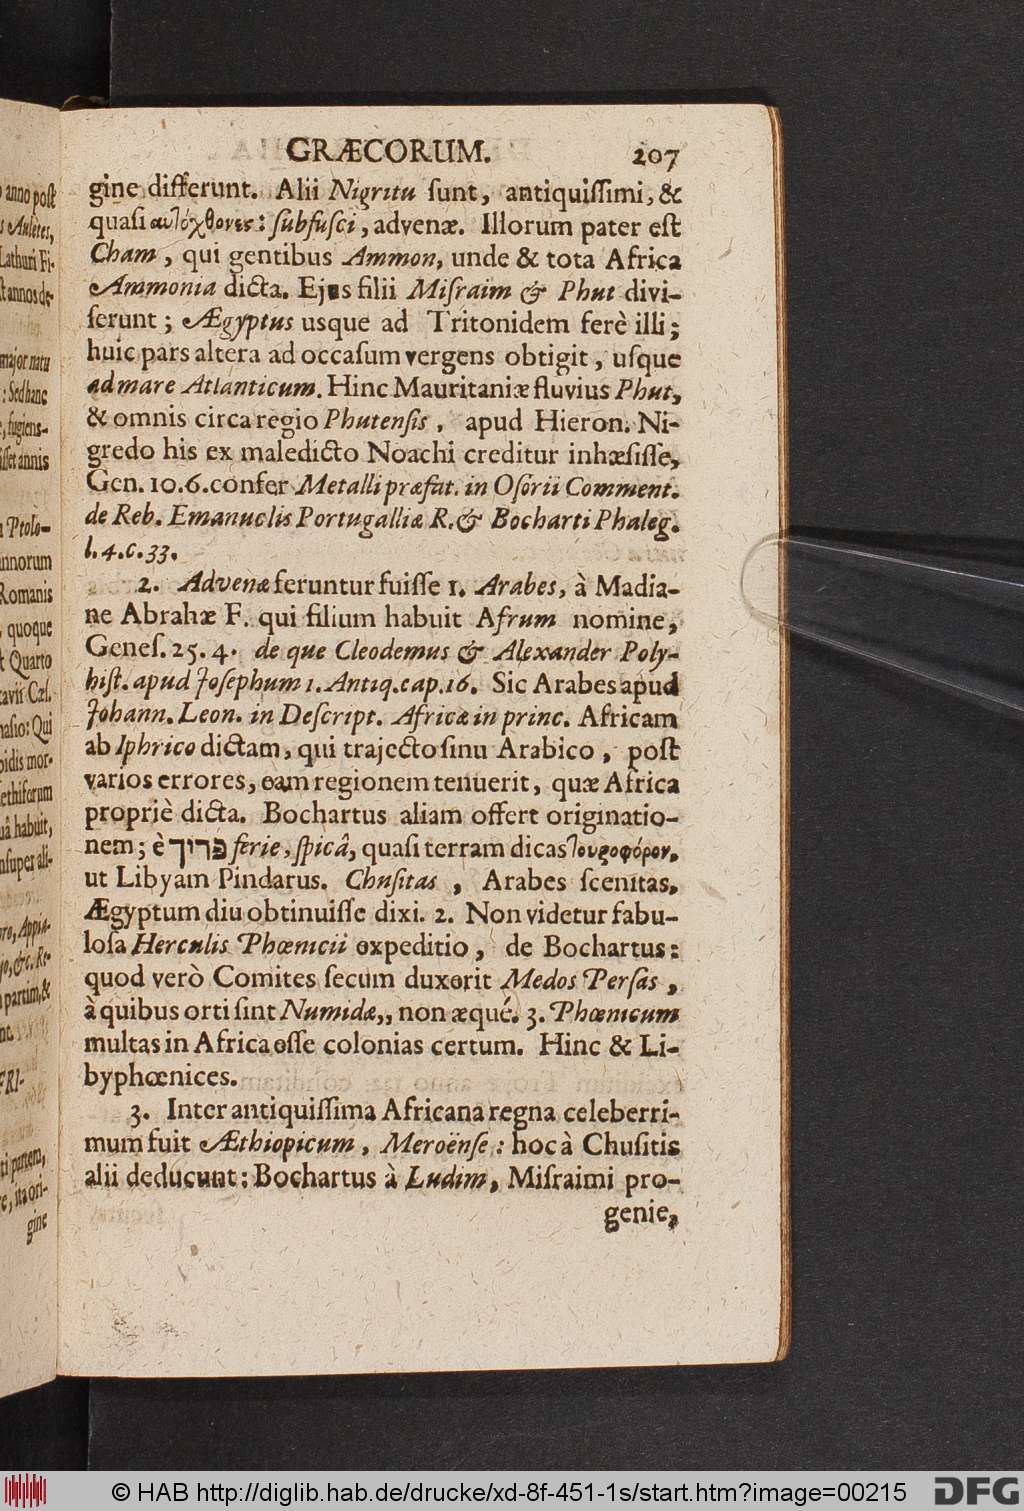 GRÆCORUM. 207
gine differunt. Alii Nigritu ſunt, antiquiſſimi, &
quaſi αυτόχθονες: ſubfuſci, advenæ. Illorum pater eſt
Cham, qui gentibus Ammon, unde & tota Africa
Ammonia dicta. Ejus filii Miſraim & Phut divi-
ſerunt; Ægyptus usque ad Tritonidem ferè illi;
huic pars altera ad occaſum vergens obtigit, uſque
ad mare Atlanticum. Hinc Mauritaniæ fluvius Phut,
& omnis circa regio Phutenſis, apud Hieron. Ni-
gredo his ex maledicto Noachi creditur inhæſiſſe,
Gen. 10. 6. confer Metalli præfat. in Oſorii Comment.
de Reb. Emanuelis Portugalliæ R. & Bocharti Phaleg.
l. 4. c. 33.
2. Advenæ feruntur fuiſſe 1. Arabes, à Madia-
ne Abrahæ F. qui filium habuit Afrum nomine,
Geneſ. 25. 4. de que Cleodemus & Alexander Poly-
hiſt. apud Joſephum 1. Antiq. cap. 16. Sic Arabes apud
Johann. Leon. in Deſcript. Africæ in princ. Africam
ab Iphrico dictam, qui trajecto ſinu Arabico, poſt
varios errores, eam regionem tenuerit, quæ Africa
propriè dicta. Bochartus aliam offert originatio-
nem; è פריך ferie, ſpicâ, quaſi terram dicas πυροφόρον,
ut Libyam Pindarus. Chuſitas, Arabes ſcenitas,
Ægyptum diu obtinuiſſe dixi. 2. Non videtur fabu-
loſa Herculis Phœnicii expeditio, de Bochartus:
quod verò Comites ſecum duxerit Medos Perſas,
à quibus orti ſint Numidæ,, non æqué. 3. Phœnicum
multas in Africa eſſe colonias certum. Hinc & Li-
byphœnices.
3. Inter antiquiſſima Africana regna celeberri-
mum fuit Æthiopicum, Meroënſe: hoc à Chuſitis
alii deducunt: Bochartus à Ludim, Miſraimi pro-
genie,
anno poſt
Auletes,
Lathuri Fi-
major natu
: Sed hanc
, fugiens-
annis
Ptolo-
annorum
Romanis
, quoque
Quarto
: Qui
mor-
habuit,
ali-
Appia-
partim, &
FRI-
gine
© HAB http://diglib.hab.de/drucke/xd-8f-451-1s/start.htm?image=00215
DFG